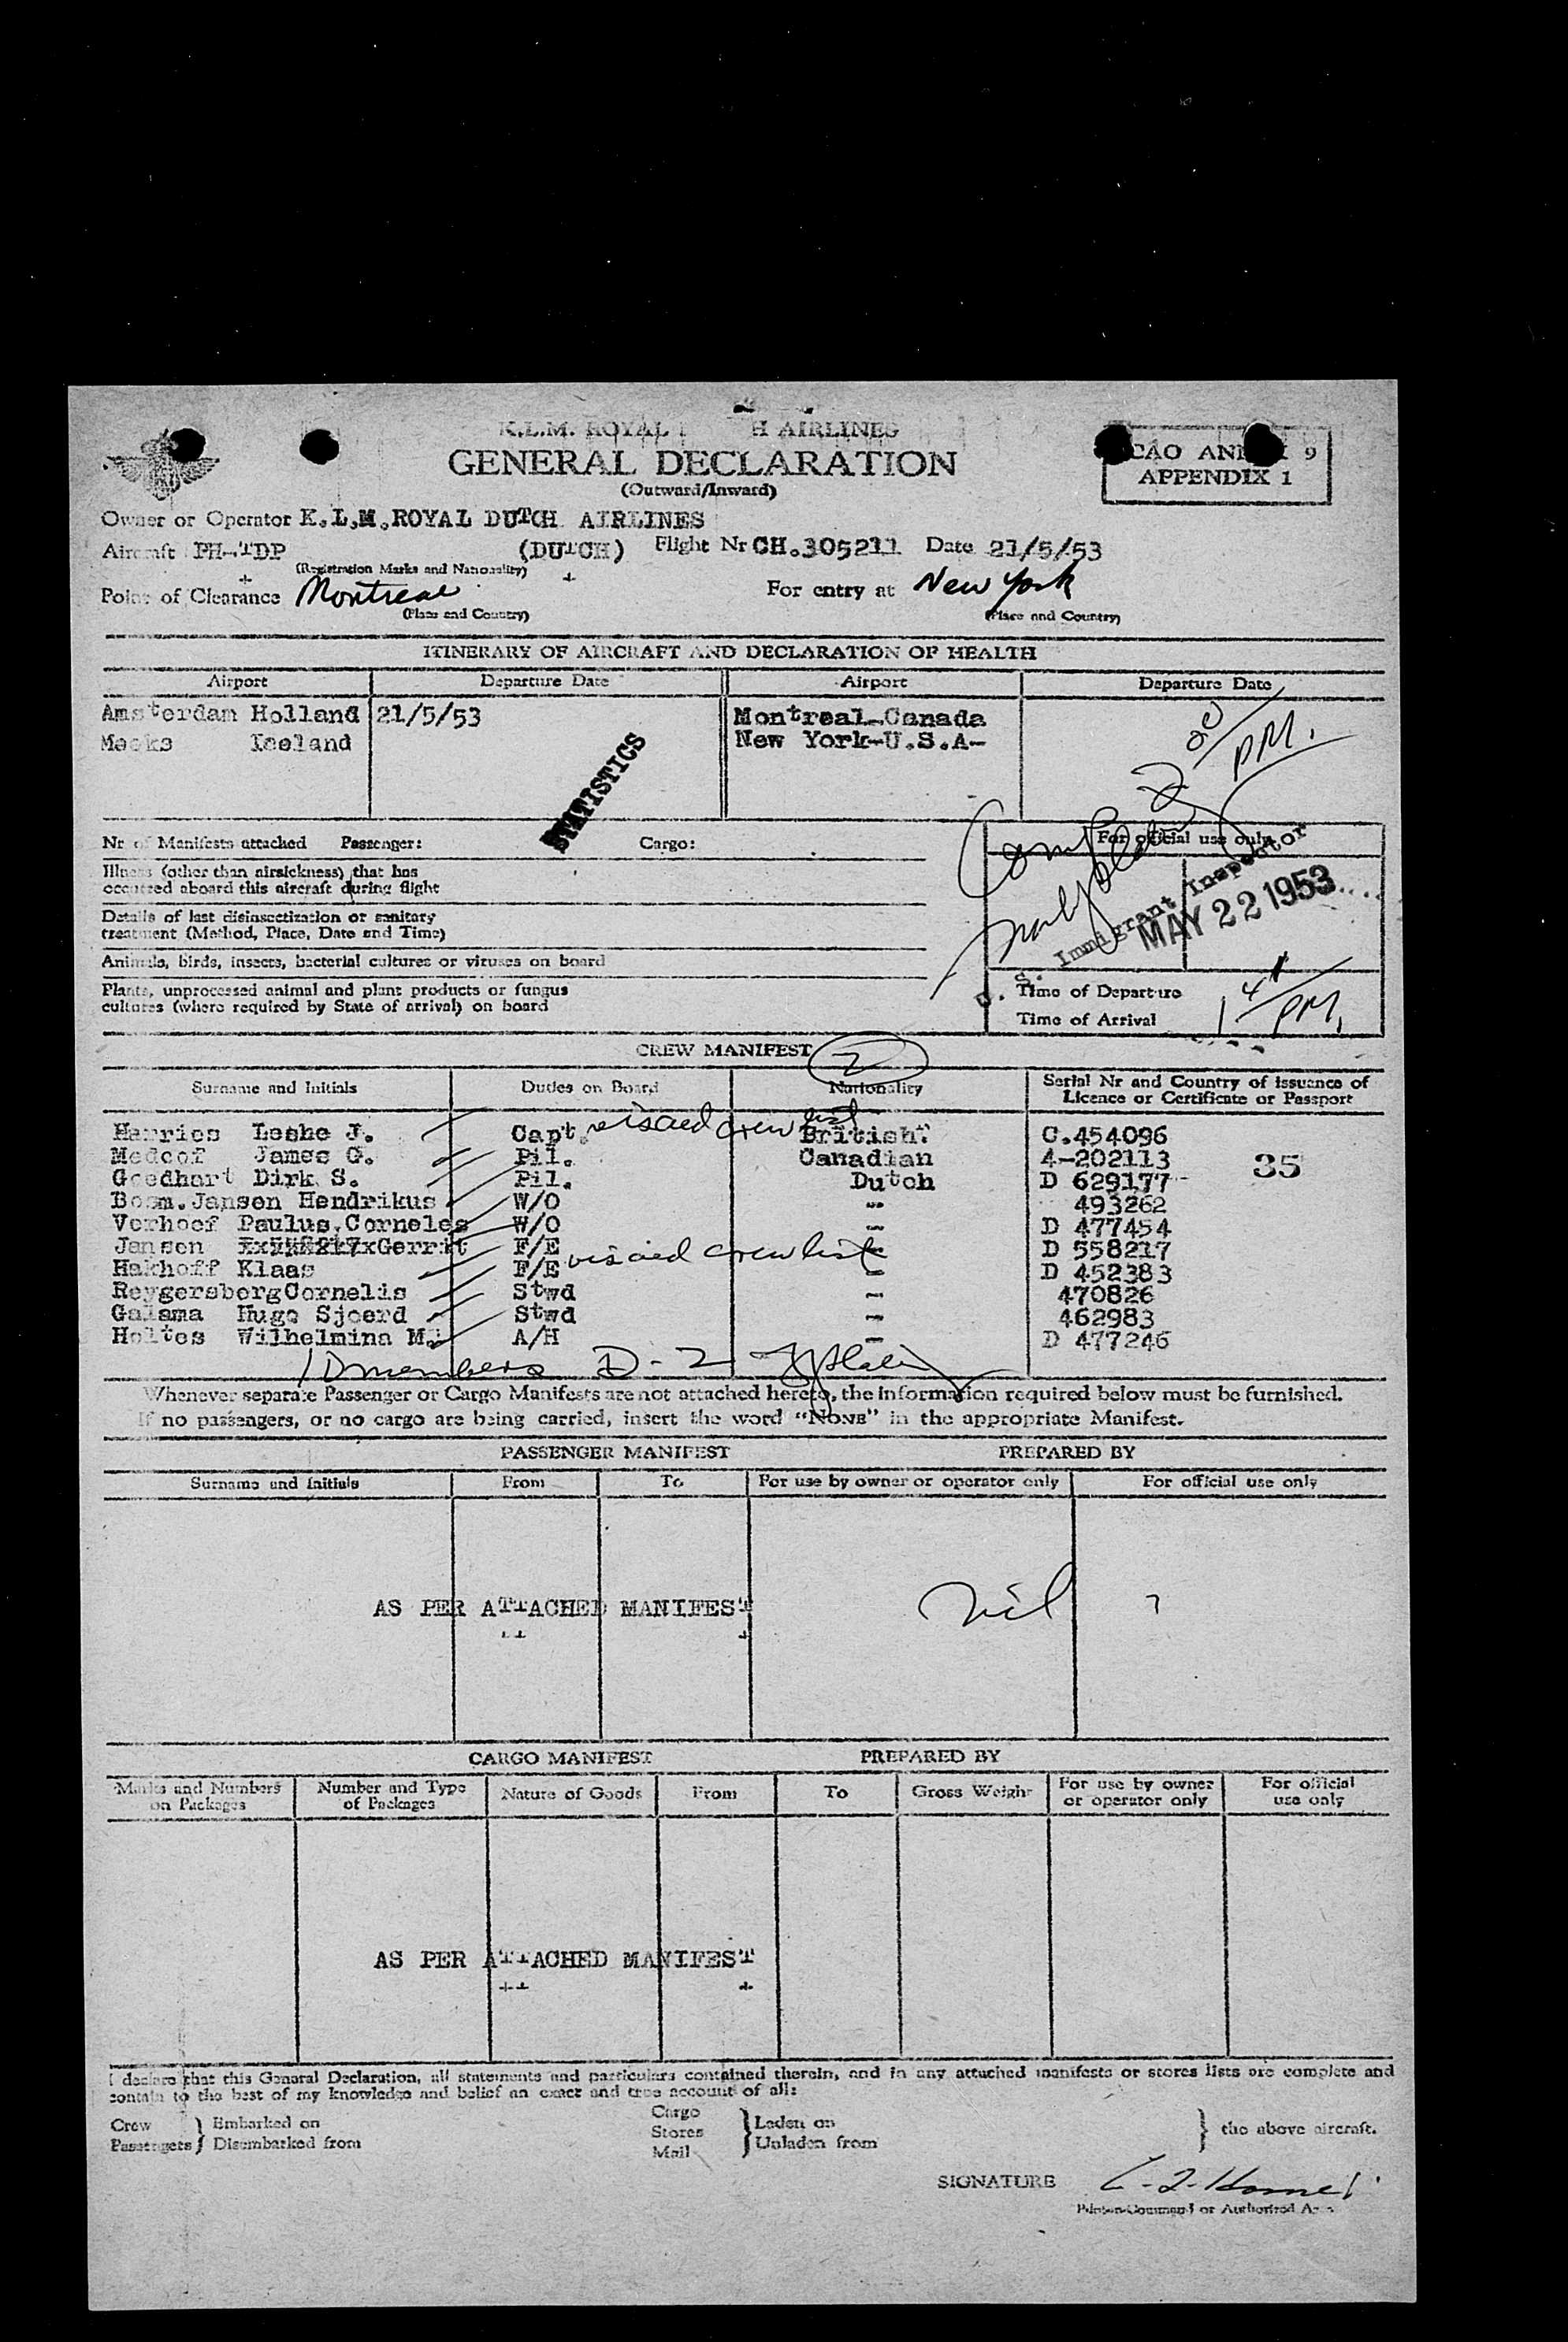 K.L.M. ROYAL H AIRLINES
GENERAL DECLARATION
(Outward/Inward)
CAO ANN 9
APPENDIX 1
Owner or Operator K.L.M. ROYAL DUTCH AIRLINES
Aircraft PH-TDP (DUTCH) Flight Nr CH.305211 Date 21/5/53
(Registration Marks and Nationality)
Point of Clearance Montreal For entry at New York
(Place and Country) (Place and Country)
ITINERARY OF AIRCRAFT AND DECLARATION OF HEALTH
Airport Departure Date Airport Departure Date
Amsterdam Holland 21/5/53 Montreal-Canada
Meeks Iceland New York-U.S.A-
2 00/PM.
STATISTICS
Nr of Manifests attached Passenger: Cargo:
For official use only
Illness (other than airsickness) that has
occurred aboard this aircraft during flight
U. S. Immigrant Inspector
MAY 22 1953
Details of last disinsectization or sanitary
treatment (Method, Place, Date and Time)
Animals, birds, insects, bacterial cultures or viruses on board
Plants, unprocessed animal and plant products or fungus
cultures (where required by State of arrival) on board
Time of Departure
Time of Arrival 1 41/PM.
CREW MANIFEST 2
Surname and Initials Duties on Board Nationality Serial Nr and Country of issuance of
Licence or Certificate or Passport
visaed crew list
Harries Leshe J. Capt. British. C.454096
Medcof James G. Pil. Canadian 4-202113
35
Goedhart Dirk S. Pil. Dutch D 629177
Boom.Jansen Hendrikus W/O -"- 493262
Verhoef Paulus.Corneles W/O -"- D 477454
Jansen Gerrit F/E -"- D 558217
visaed crew list
Hakhoff Klaas F/E -"- D 452383
Reygersberg Cornelis Stwd -"- 470826
Galama Hugo Sjoerd Stwd -"- 462983
Holtes Wilhelmina M. A/H -"- D 477246
10 members D-2
Whenever separate Passenger or Cargo Manifests are not attached hereto, the information required below must be furnished.
If no passengers, or no cargo are being carried, insert the word “NONE” in the appropriate Manifest.
PASSENGER MANIFEST PREPARED BY
Surname and Initials From To For use by owner or operator only For official use only
AS PER ATTACHED MANIFEST nil
CARGO MANIFEST PREPARED BY
Marks and Numbers on Packages Number and Type of Packages Nature of Goods From To Gross Weight For use by owner or operator only For official use only
AS PER ATTACHED MANIFEST
I declare that this General Declaration, all statements and particulars contained therein, and in any attached manifests or stores lists are complete and
contain to the best of my knowledge and belief an exact and true account of all:
Crew Embarked on Cargo Laden on
Stores the above aircraft.
Passengers Disembarked from Mail Unladen from
SIGNATURE
Pilot-in-Command or Authorized